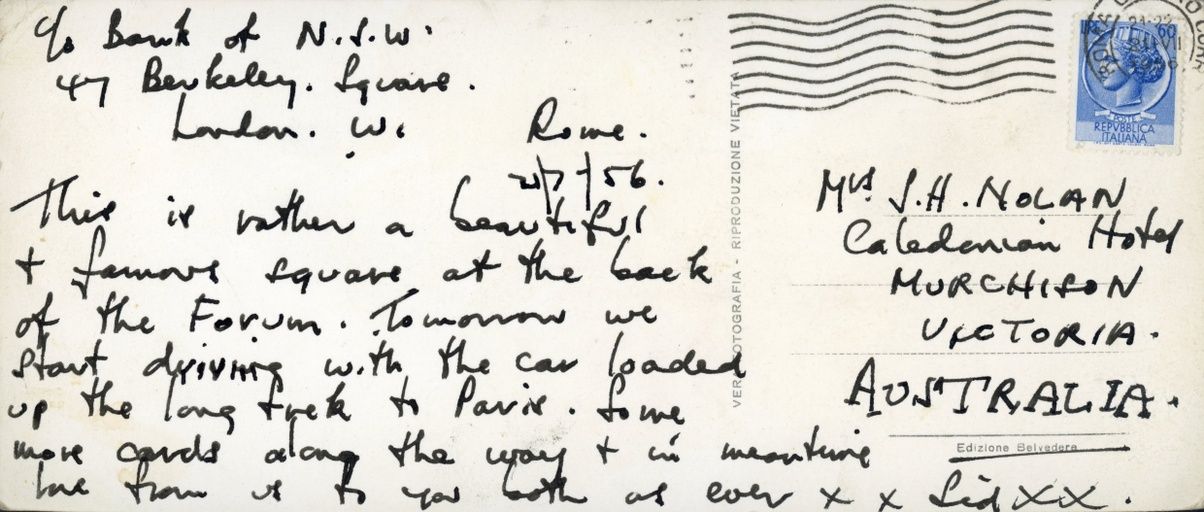 c/o Bank of N.S.W.
47 Berkeley. Square.
London. W1
Rome.
21/7/56.
This is rather a beautiful
+ famous square at the back
of the Forum. Tomorrow we
start driving with the car loaded
up the long trek to Paris. Some
more cards along the way + in meantime
love from us to you both as ever x x Sid XX.
VERA FOTOGRAFIA - RIPRODUZIONE VIETATA
LIRE 60
POSTE
REPVBBLICA
ITALIANA
ROMA
21-22
Mrs S.H. NOLAN
Caledonian Hotel
MURCHISON
VICTORIA.
AUSTRALIA.
Edizione Belvedera